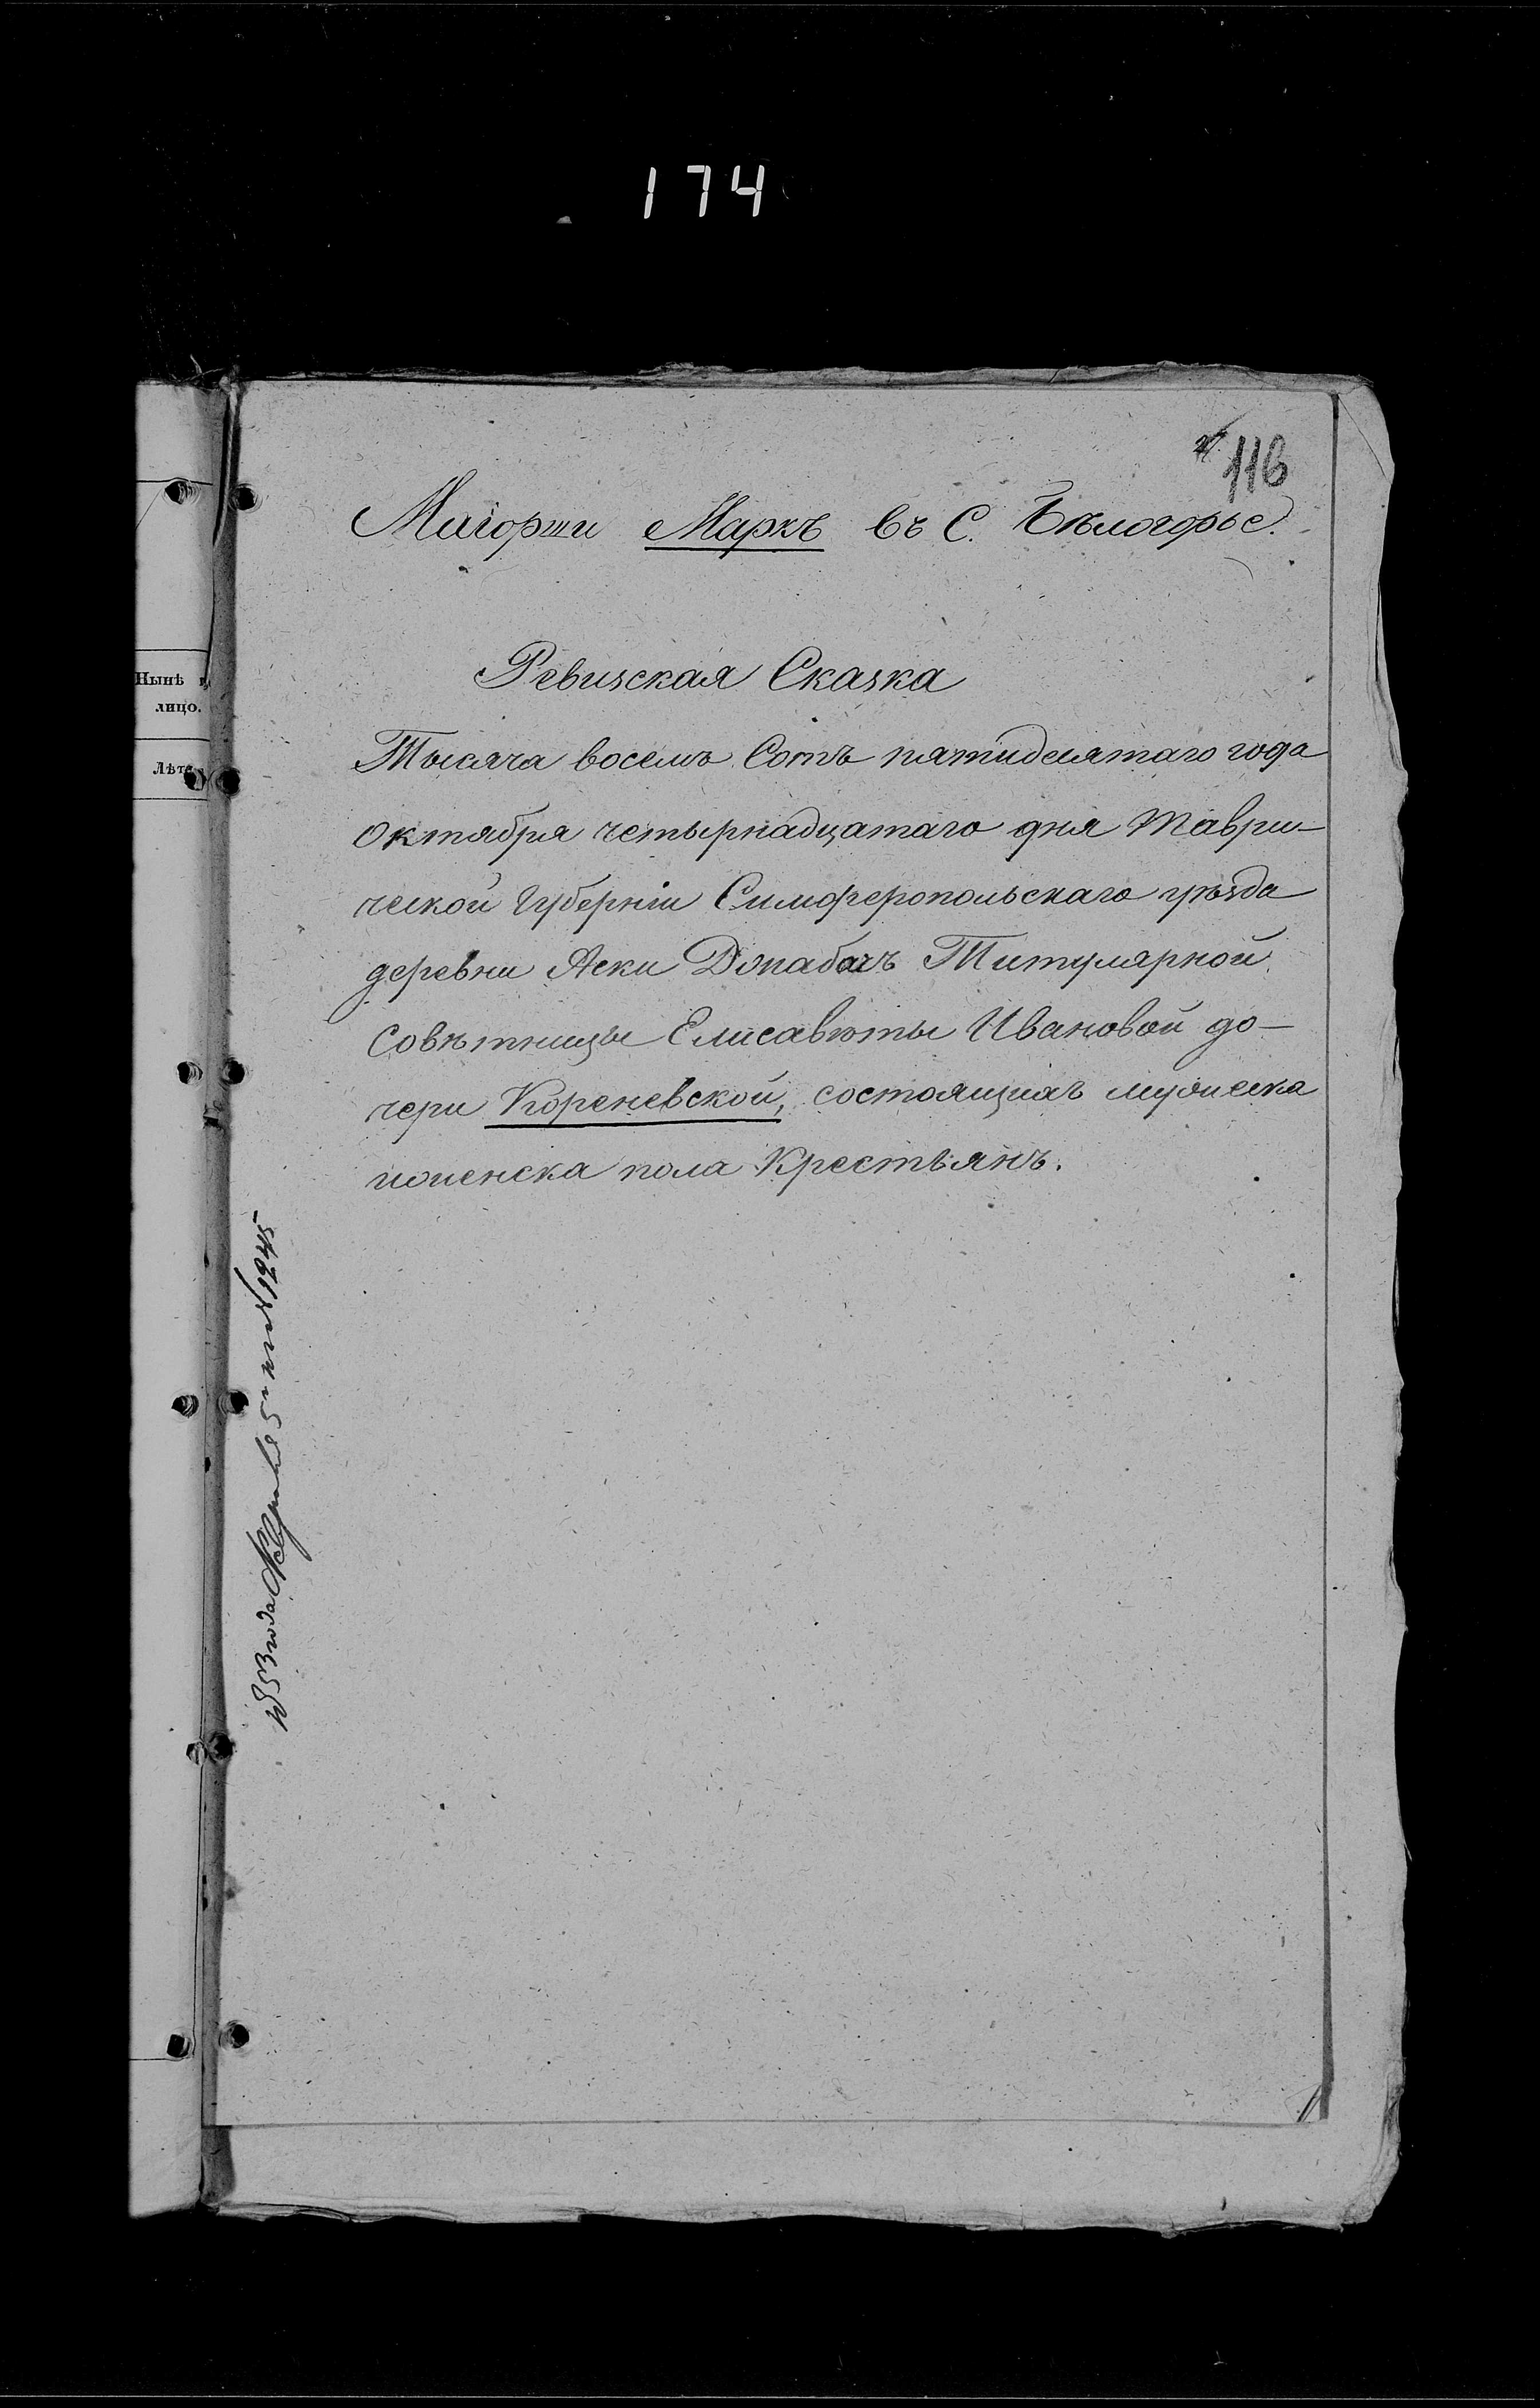 174
116
Маіорши Маркъ въ С. Бѣлогорье.
Ревизская Сказка
Тысяча восемь Сотъ пятидесятаго года
Октября четырнадцатаго дня Таври-
ческой Губерніи Симферопольскаго уѣзда
деревни Аски Допабачъ Титулярной
Совѣтницы Елисаветы Ивановой до-
чери Кореневской, состоящихъ мужеска
и женска пола Крестьянъ.
Нынѣ
лицо.
Лѣта
1853 года Февраля 5 № 1245